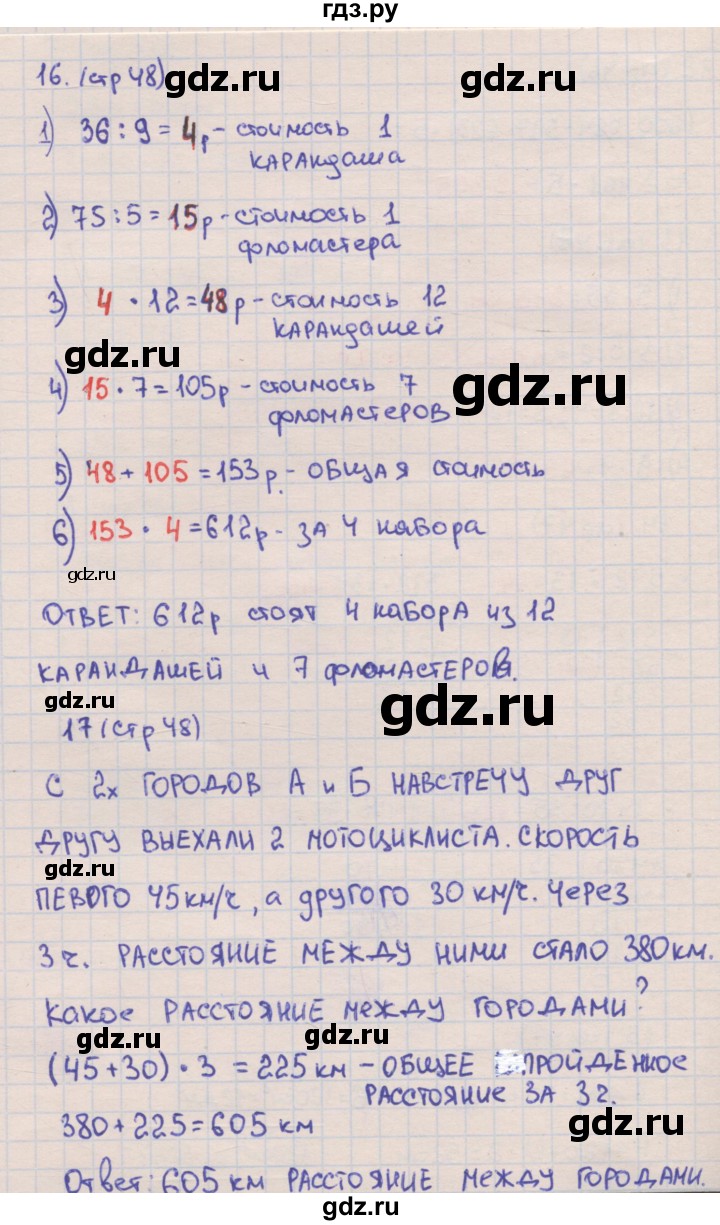 гдз.ру
16. (стр 48)
gdz.ru
1) 36 : 9 = 4р - стоимость 1
КАРАНДАША
2) 75 : 5 = 15р - стоимость 1
фломастера
3) 4 · 12 = 48р - стоимость 12
КАРАНДАШЕЙ
gdz.ru
4) 15 · 7 = 105р - стоимость 7
gdz.ru
фломастеров
5) 48 + 105 = 153р. - ОБЩАЯ стоимость
6) 153 · 4 = 612р - ЗА 4 набора
gdz.ru
ОТВЕТ: 612р стоят 4 набора из 12
КАРАНДАШЕЙ и 7 фломастеров.
gdz.ru
gdz.ru
17 (стр 48)
С 2х ГОРОДОВ А и Б НАВСТРЕЧУ ДРУГ
ДРУГУ ВЫЕХАЛИ 2 МОТОЦИКЛИСТА. СКОРОСТЬ
gdz.ru
ПЕВОГО 45 км/ч, а другого 30 км/ч. Через
3 ч. РАССТОЯНИЕ МЕЖДУ НИМИ СТАЛО 380 км.
Какое РАССТОЯНИЕ МЕЖДУ ГОРОДАМИ?
gdz.ru
gdz.ru
(45 + 30) · 3 = 225 км - ОБЩЕЕ ПРОЙДЕННОЕ
РАССТОЯНИЕ ЗА 3 ч.
380 + 225 = 605 км
gdz.ru
Ответ: 605 км РАССТОЯНИЕ МЕЖДУ ГОРОДАМИ.
gdz.ru